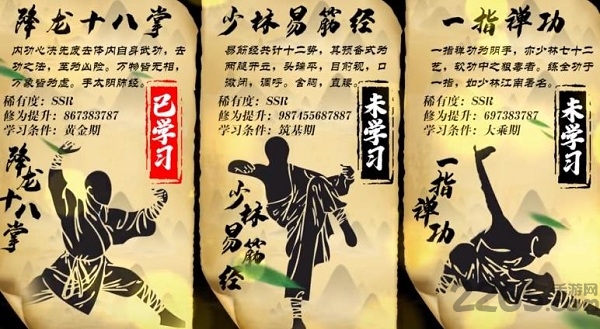 降龙十八掌
内功心决先废去体内自身武功，去
功之法，至为凶险。万物皆无相，
万象皆为虚。手太阴肺经。
稀有度：SSR
修为提升：867383787
学习条件：黄金期
已学习
降龙十八掌
少林易筋经
易筋经共计十二势，其预备式为
两腿开元，头端平，目前视，口
微闭，调呼。含胸，直腰。
稀有度：SSR
修为提升：987455687887
学习条件：筑基期
未学习
少林易筋经
一指禅功
一指禅功为阴手，亦少林七十二
艺，软功中之狠毒者。练全功于
一指，如少林江南著名。
稀有度：SSR
修为提升：697383787
学习条件：大乘期
未学习
一指禅功
手游网
2265.com